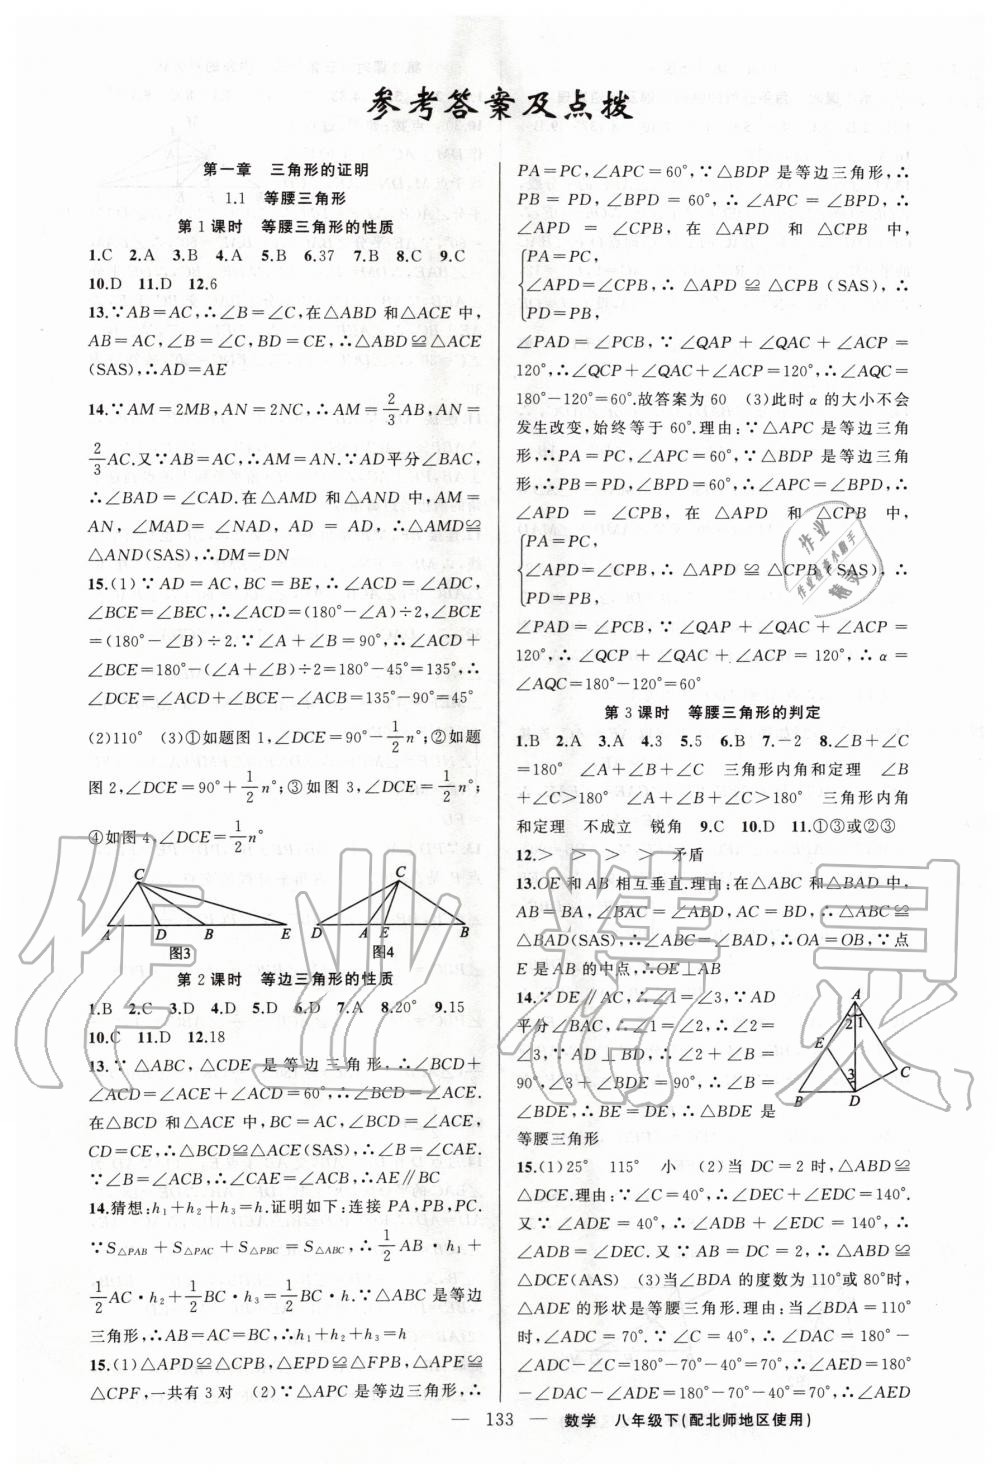 参考答案及点拨
第一章　三角形的证明
1.1　等腰三角形
第1课时　等腰三角形的性质
1.C　2.A　3.B　4.A　5.B　6.37　7.B　8.C　9.C
10.D　11.D　12.6
13.∵AB=AC,∴∠B=∠C,在△ABD 和△ACE 中,
AB=AC,∠B=∠C,BD=CE,∴△ABD≌△ACE
(SAS),∴AD=AE
14.∵AM=2MB,AN=2NC,∴AM=2/3AB,AN=
2/3AC.又∵AB=AC,∴AM=AN.∵AD平分∠BAC,
∴∠BAD=∠CAD.在△AMD 和△AND 中,AM=
AN,∠MAD=∠NAD,AD=AD,∴△AMD≌
△AND(SAS),∴DM=DN
15.(1)∵AD=AC,BC=BE,∴∠ACD=∠ADC,
∠BCE=∠BEC,∴∠ACD=(180°-∠A)÷2,∠BCE
=(180°-∠B)÷2.∵∠A+∠B=90°,∴∠ACD+
∠BCE=180°-(∠A+∠B)÷2=180°-45°=135°,∴
∠DCE=∠ACD+∠BCE-∠ACB=135°-90°=45°
(2)110°　(3)①如题图1,∠DCE=90°-1/2n°;②如题
图2,∠DCE=90°+1/2n°;③如图3,∠DCE=90°-1/2n°;
④如图4,∠DCE=1/2n°
C
A D B E
图3
C
D A E B
图4
第2课时　等边三角形的性质
1.B　2.C　3.D　4.D　5.D　6.D　7.A　8.20°　9.15
10.C　11.D　12.18
13.∵△ABC,△CDE 是等边三角形,∴∠BCD+
∠ACD=∠ACE+∠ACD=60°,∴∠BCD=∠ACE.
在△BCD 和△ACE 中,BC=AC,∠BCD=∠ACE,
CD=CE,∴△BCD≌△ACE(SAS),∴∠B=∠CAE.
∵∠B=∠ACB,∴∠CAE=∠ACB,∴AE∥BC
14.猜想:h₁+h₂+h₃=h.证明如下:连接 PA,PB,PC.
∵S△PAB+S△PAC+S△PBC=S△ABC,∴1/2AB·h₁+
1/2AC·h₂+1/2BC·h₃=1/2BC·h.∵△ABC 是等边
三角形,∴AB=AC=BC,∴h₁+h₂+h₃=h
15.(1)△APD≌△CPB,△EPD≌△FPB,△APE≌
△CPF,一共有3对　(2)∵△APC 是等边三角形,∴
PA=PC,∠APC=60°,∵△BDP 是等边三角形,∴
PB=PD,∠BPD=60°,∴∠APC=∠BPD,∴
∠APD=∠CPB,在△APD 和△CPB 中,
PA=PC,
∠APD=∠CPB,∴△APD≌△CPB(SAS),∴
PD=PB,
∠PAD=∠PCB,∵∠QAP+∠QAC+∠ACP=
120°,∴∠QCP+∠QAC+∠ACP=120°,∴∠AQC=
180°-120°=60°.故答案为60　(3)此时α的大小不会
发生改变,始终等于60°.理由:∵△APC 是等边三角
形,∴PA=PC,∠APC=60°,∵△BDP 是等边三角
形,∴PB=PD,∠BPD=60°,∴∠APC=∠BPD,∴
∠APD=∠CPB,在△APD 和△CPB 中,
PA=PC,
∠APD=∠CPB,∴△APD≌△CPB(SAS),∴
PD=PB,
∠PAD=∠PCB,∵∠QAP+∠QAC+∠ACP=
120°,∴∠QCP+∠QAC+∠ACP=120°,∴α=
∠AQC=180°-120°=60°
第3课时　等腰三角形的判定
1.B　2.A　3.A　4.3　5.5　6.B　7.-2　8.∠B+∠C
=180°　∠A+∠B+∠C　三角形内角和定理　∠B
+∠C>180°　∠A+∠B+∠C>180°　三角形内角
和定理　不成立　锐角　9.C　10.D　11.①③或②③
12.>　>　>　>　矛盾
13.OE 和 AB 相互垂直.理由:在△ABC 和△BAD 中,
AB=BA,∠BAC=∠ABD,AC=BD,∴△ABC≌
△BAD(SAS),∴∠ABC=∠BAD,∴OA=OB,∵点
E 是 AB 的中点,∴OE⊥AB
14.∵DE∥AC,∴∠1=∠3,∵AD
平分∠BAC,∴∠1=∠2,∴∠2=
∠3,∵AD⊥BD,∴∠2+∠B=
90°,∠3+∠BDE=90°,∴∠B=
∠BDE,∴BE=DE,∴△BDE 是
等腰三角形
A
2 1
E
3
C
B D
15.(1)25°　115°　小　(2)当 DC=2 时,△ABD≌
△DCE.理由:∵∠C=40°,∴∠DEC+∠EDC=140°.
又∵∠ADE=40°,∴∠ADB+∠EDC=140°,∴
∠ADB=∠DEC.又∵AB=DC=2,∴△ABD≌
△DCE(AAS)　(3)当∠BDA 的度数为110°或80°时,
△ADE 的形状是等腰三角形.理由:当∠BDA=110°
时,∠ADC=70°.∵∠C=40°,∴∠DAC=180°-
∠ADC-∠C=180°-70°-40°=70°,∴∠AED=180°
-∠DAC-∠ADE=180°-70°-40°=70°,∴∠AED=
— 133 —　数学　八年级下(配北师地区使用)
作业精灵
作业
作业检查小助手
精灵